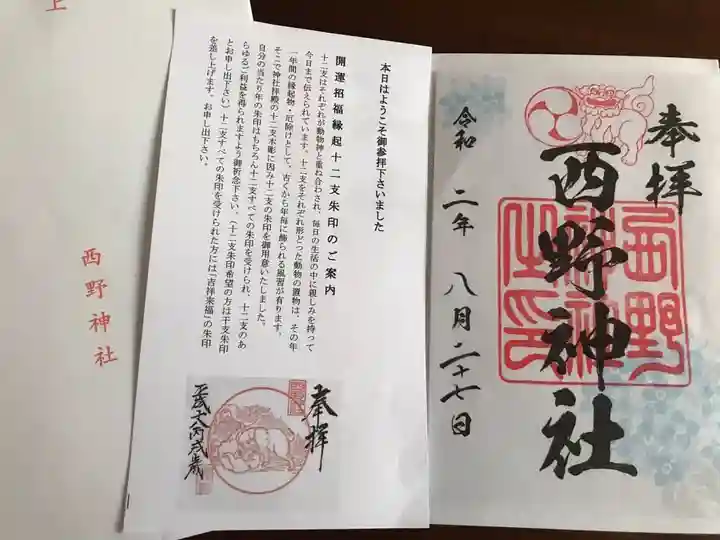 奉拝
西野神社
令和 二年 八月二十七日
西野神社之印
本日はようこそ御参拝下さいました
開運招福縁起十二支朱印のご案内
十二支はそれぞれが動物神と重ね合わされ、毎日の生活の中に親しみを持って
今日まで伝えられています。十二支をそれぞれ形どった動物の置物は、その年
一年間の縁起物・厄除けとして、古くから年毎に飾られる風習が有ります。
そこで神社拝殿の十二支木彫に因み十二支の朱印を御用意いたしました。
自分の当たり年の朱印はもちろん十二支すべての朱印を受けられ、十二支のあ
らゆるご利益を得られますよう御祈念下さい、（十二支朱印希望の方は干支朱印
とお申し出下さい）十二支すべての朱印を受けられた方には「吉祥来福」の朱印
を差し上げます。お申し出下さい。
奉拝
上
西野神社